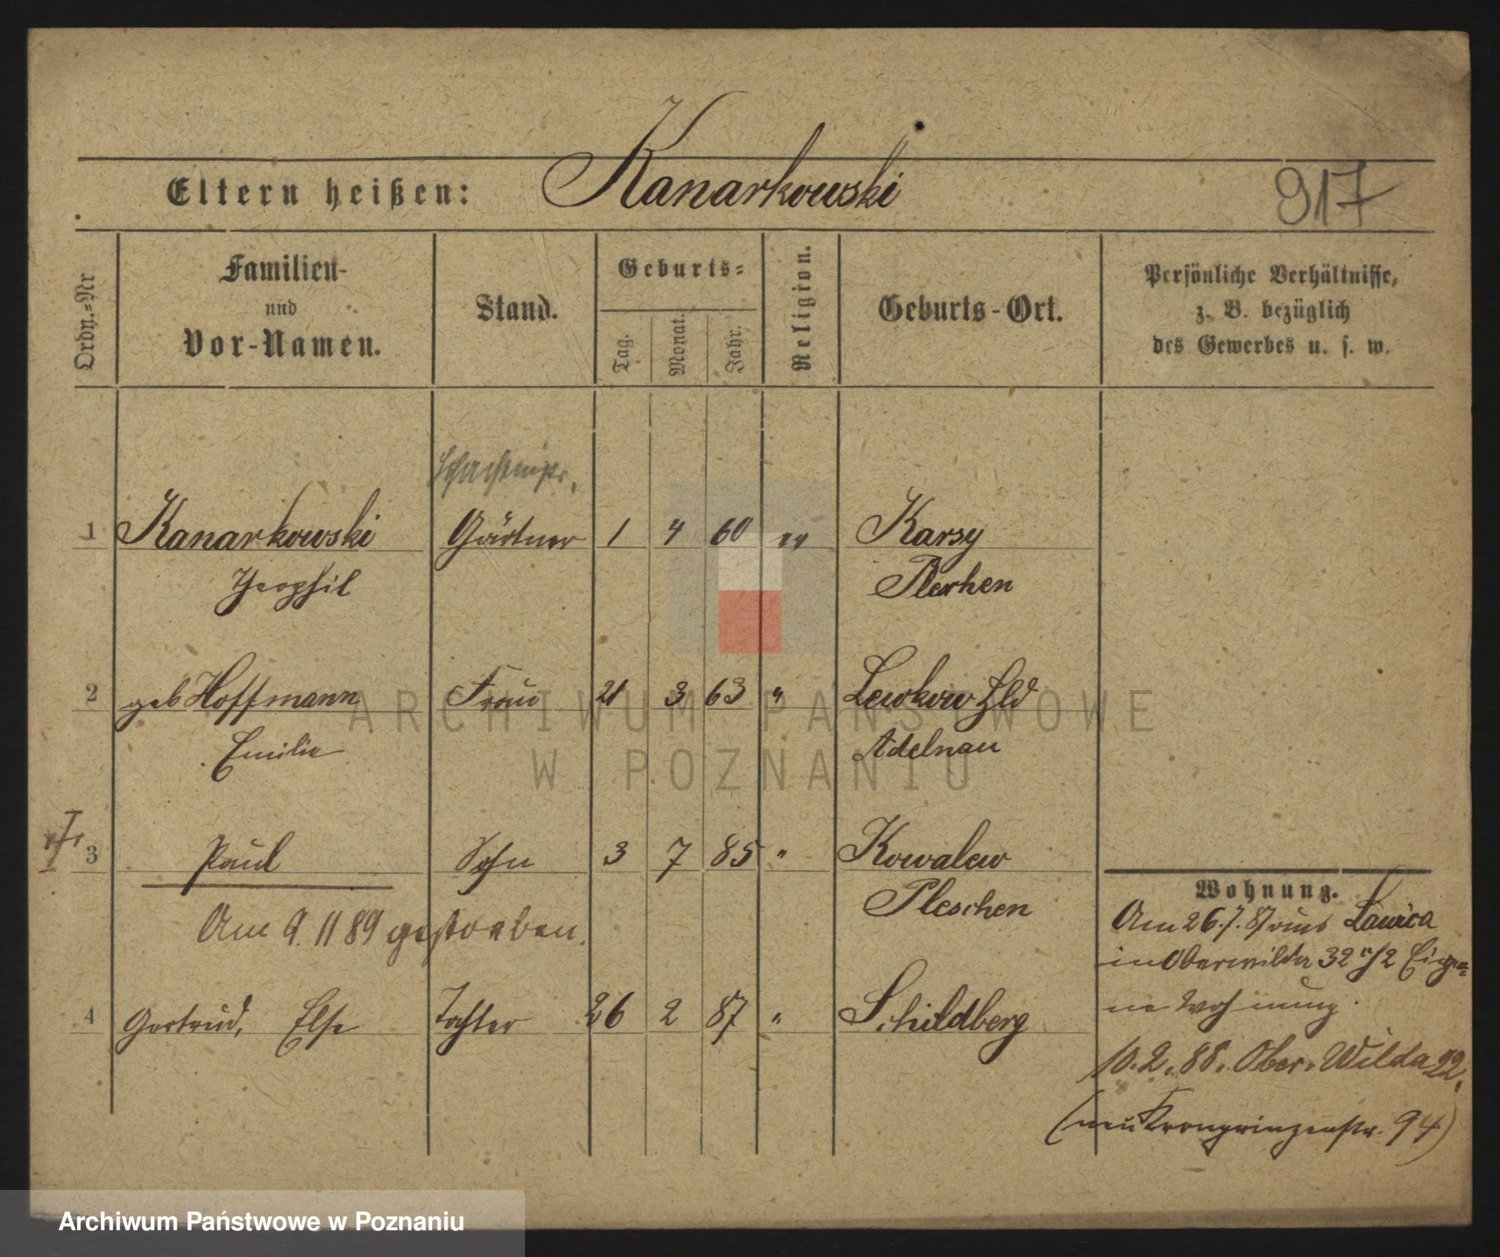 Eltern heißen: Kanarkowski
917
Ordn.-Nr
Familien-
und
Vor-Namen.
Stand.
Geburts-
Tag.
Monat.
Jahr.
Religion.
Geburts-Ort.
Persönliche Verhältnisse,
z. B. bezüglich
des Gewerbes u. s. w.
1 Kanarkowski Gärtner 1 4 60 "" Karsy
Theophil Pleschen
2 geb Hoffmann Frau 21 3 63 " Lewkow Hld
Emilie Adelnau
3 Paul Sohn 3 7 85 " Kowalew
Am 9. 11 89 gestorben. Pleschen
4 Gertrud, Else Tochter 26 2 87 " Schildberg
Wohnung.
Am 26.7.87 aus Lawica
in Oberwilda 32 Eige-
ne Wohnung.
10.2.88. Ober-Wilda 22.
(neu Kronprinzenstr. 94)
ARCHIWUM PAŃSTWOWE
W POZNANIU
Archiwum Państwowe w Poznaniu